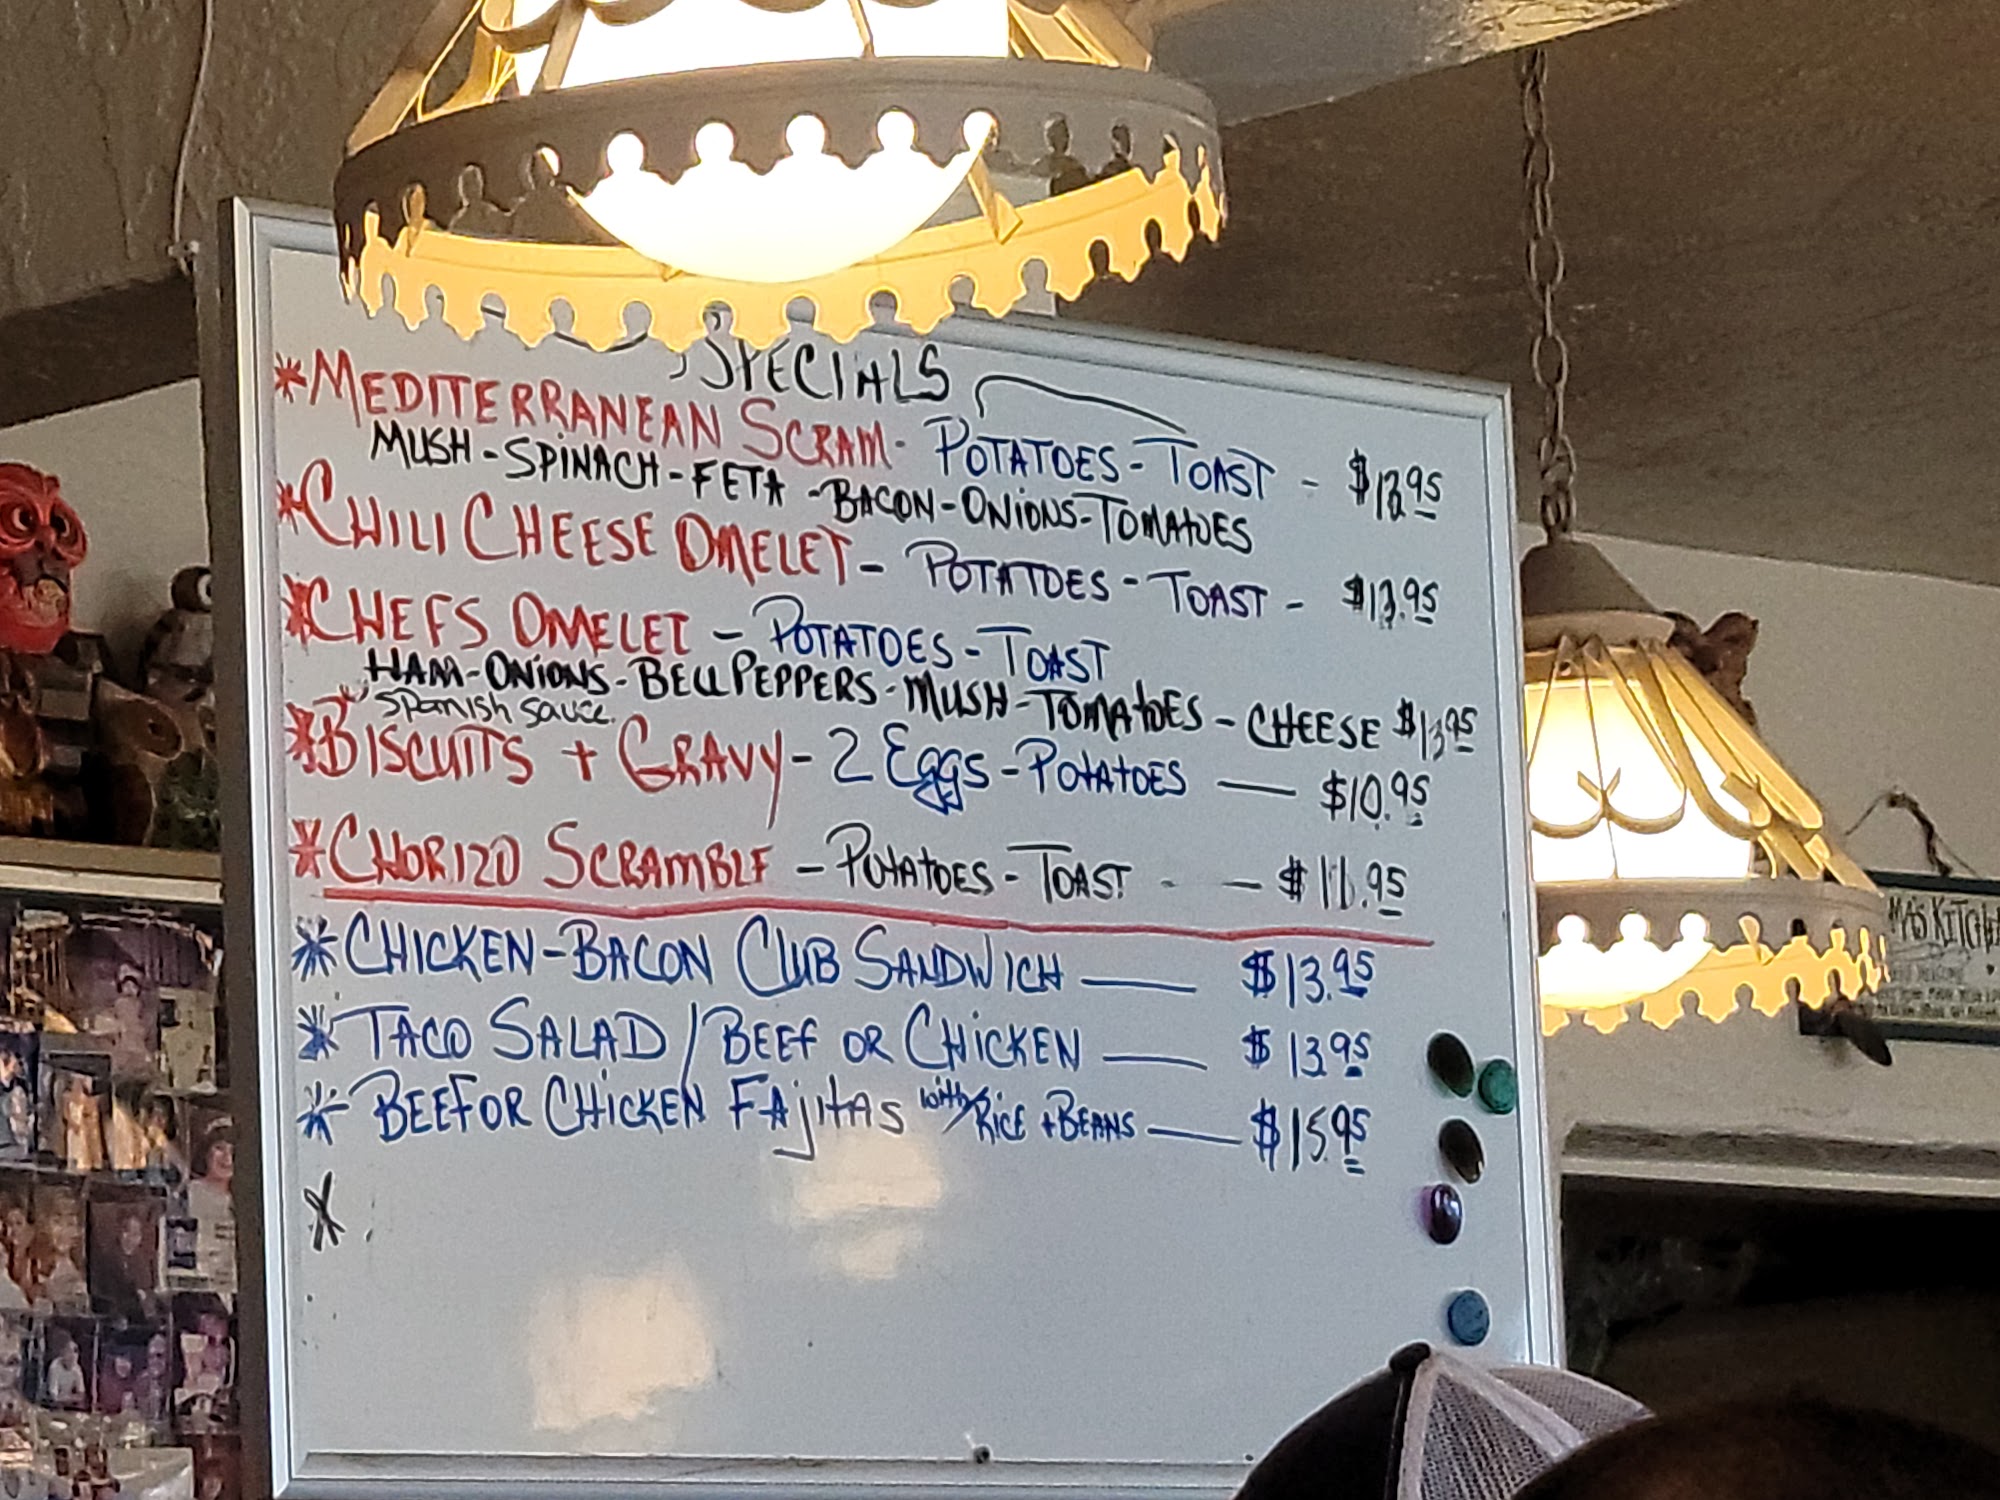 SPECIALS
*MEDITERRANEAN SCRAM- POTATOES-TOAST -
MUSH-SPINACH-FETA-BACON-ONIONS-TOMATOES
*CHILI CHEESE OMELET- POTATOES-TOAST -
*CHEFS OMELET - POTATOES-TOAST
HAM-ONIONS-BELL PEPPERS-MUSH-TOMATOES-CHEESE $13.95
Spanish sauce.
*BISCUITS + GRAVY-2 Eggs-POTATOES — $10.95
*CHORIZO SCRAMBLE -POTATOES-TOAST - — $11.95
*CHICKEN-BACON CLUB SANDWICH — $13.95
*TACO SALAD/BEEF OR CHICKEN — $13.95
*BEEF OR CHICKEN FAJITAS with RICE + BEANS — $15.95
*.